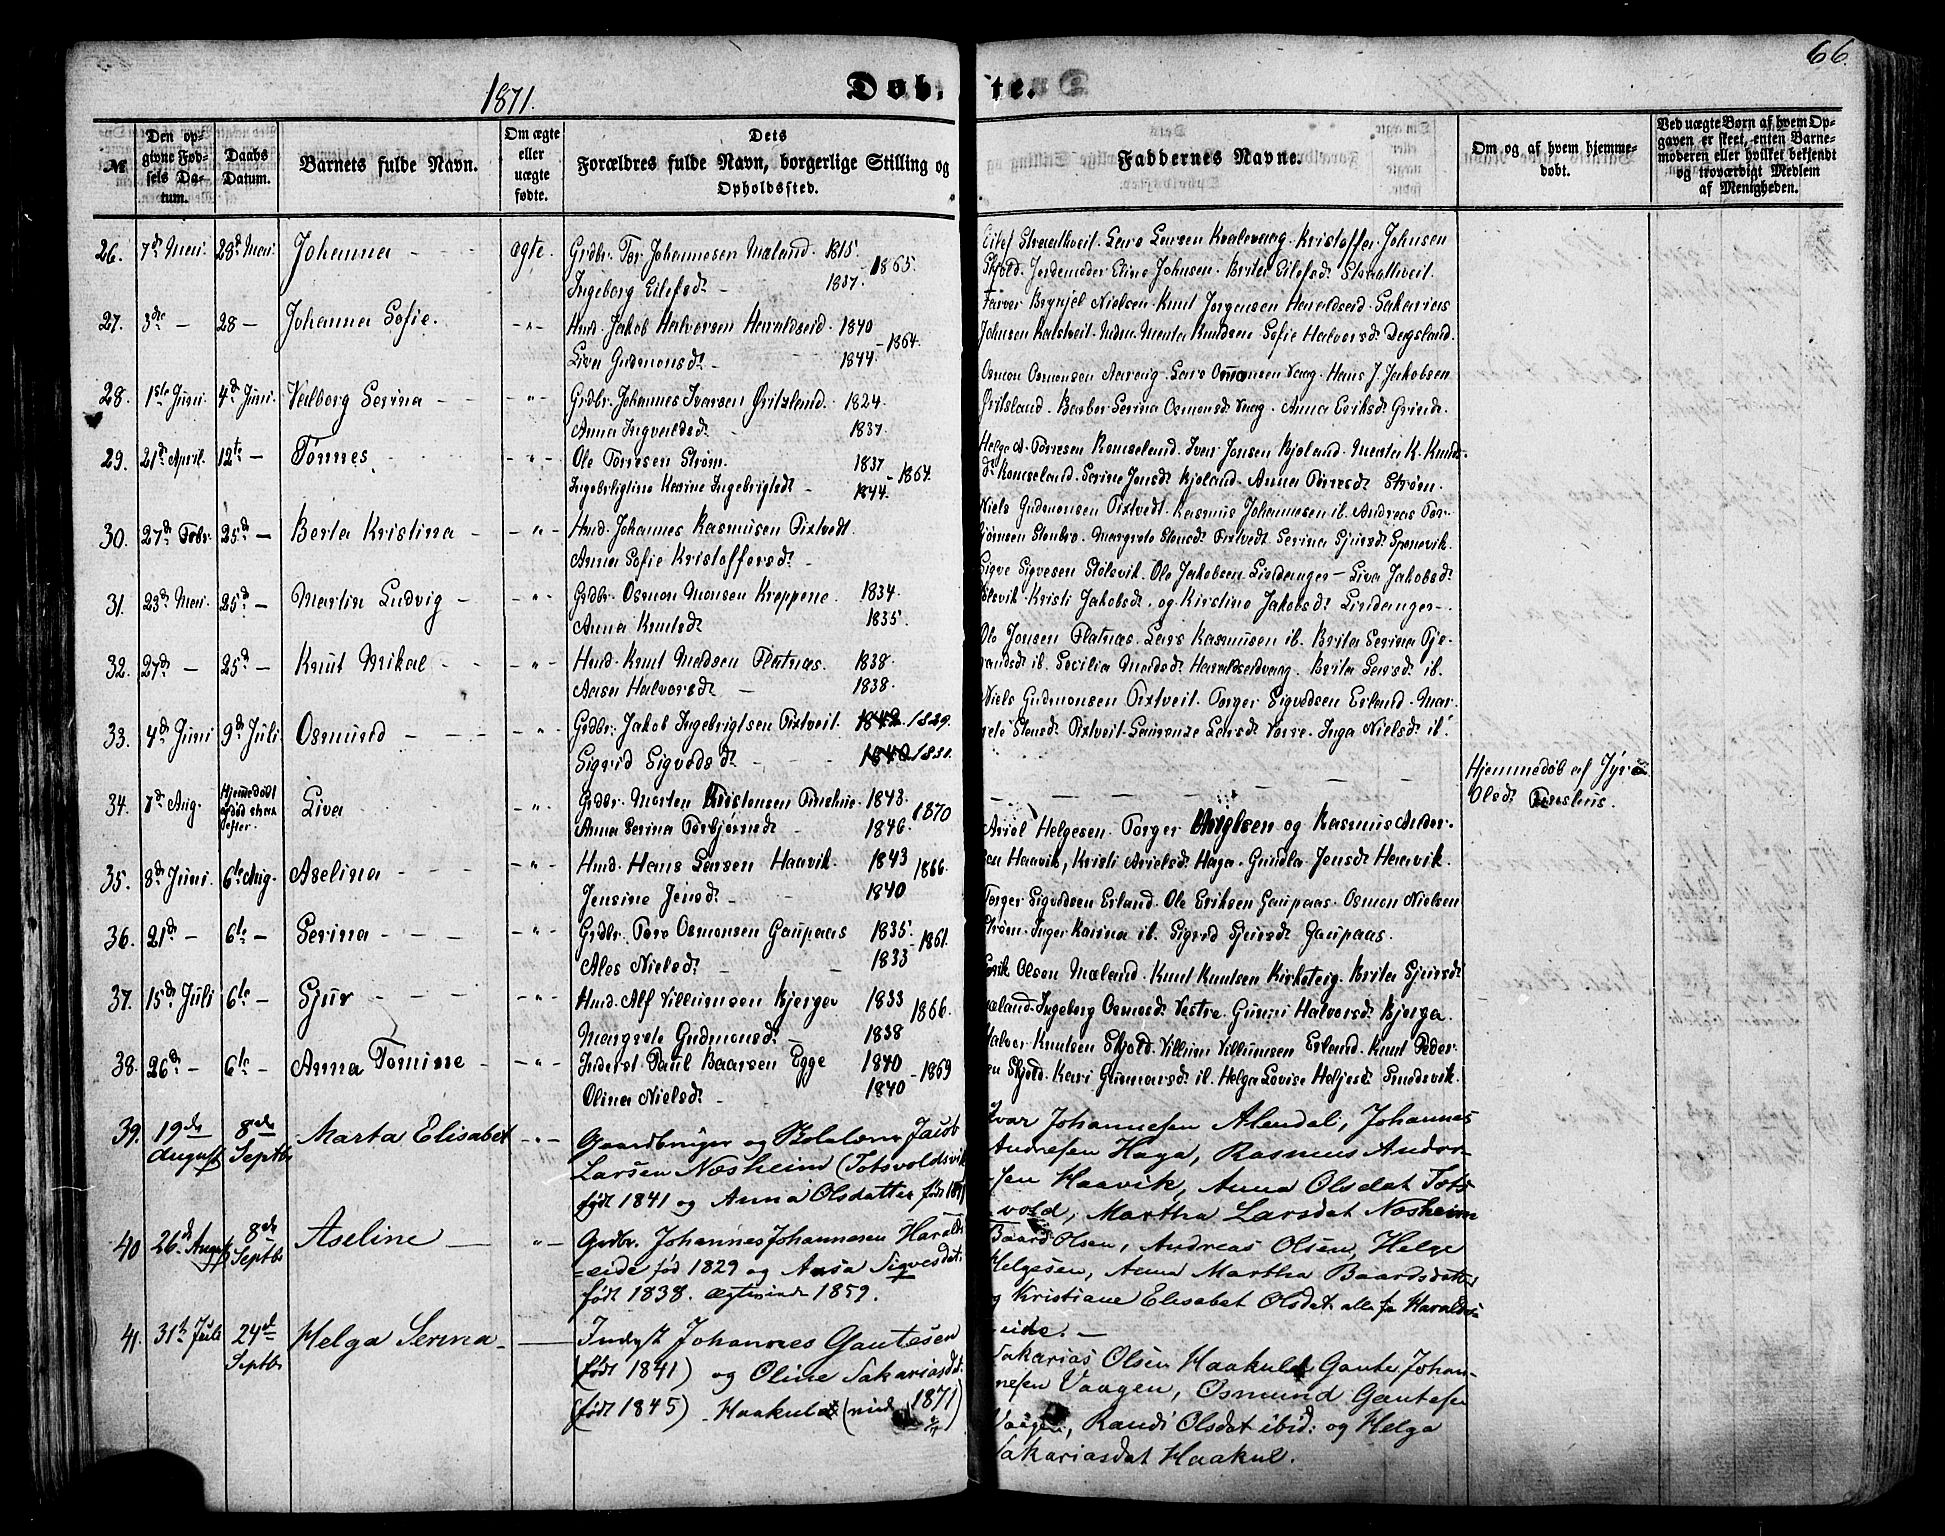 66.
1871.
Døb
te.
№
Den op-
givne Fød-
sels Da-
tum.
Daabs
Datum.
Barnets fulde Navn.
Om ægte
eller
uægte
fødte.
Dets
Forældres fulde Navn, borgerlige Stilling og
Opholdssted.
Faddernes Navne.
Om og af hvem hjemme-
døbt.
Ved uægte Børn af hvem Op-
gaven er skeet, enten Barne-
moderen eller hvilket bekjendt
og troværdigt Medlem
af Menigheden.
26. 7d Mai. 28d Mai. Johanna - - - ægte. Grdbr. Tor Johannesen Mæland. 1815.
Ingeborg Eilefsdt - 1837. - 1865.
Eilef Straathveit. Lars Larsen Kvalevaag. Kristoffer Johnsen
Skjold. Jordemoder Eline Johnsen. Brita Eilefsdt Straatveit.
27. 3die - 28 - Johanna Sofie. - " - Hmd. Jakob Halvorsen Haraldseid. 1840
Liva Gudmonsdt - 1844. - 1864.
Farver Brynjel Nielsen. Knut Jørgensen Haraldseid. Sakarias
Johnsen Kalstveit. Mdm. Marta Knudsen. Sofie Halvorsdt Dagsland.
28. 1ste Juni. 4d Juni. Valborg Serina - - - " - Grdbr. Johannes Ivarsen Øritsland. 1824.
Anna Ingvaldsdt - 1837.
Osmon Osmonsen Aarvig. Lars Osmonsen Vaag. Hans J Jakobsen
Øritsland. Barbor Serina Osmonsdt Vaag. Anna Eriksdt Grinde.
29. 21d April. 12te - Tønnes. - " - Ole Torresen Strøm. 1837
Ingeborg Karine Ingebrigtsdt - 1844. - 1864.
Helge A. Torresen Romseland. Iver Jonsen Bjoland. Marta K. Knuds-
dt Romseland. Serine Jensdt Bjoland. Anna Torresdt Strøm.
30. 27d Febr. 25d - Berta Kristina - - " - Hmd. Johannes Rasmusen Tixtvedt
Anna Sofie Kristoffersdt.
Niels Gudmonsen Tixtvedt. Rasmus Johannesen ib. Andreas Tor-
bjørnsen Stenbro. Margrete Stensdt Tixtvedt. Serina Sjursdt Spannevik.
31. 23d Mai. 25d - Martin Ludvig - - " - Grdbr. Osmon Monsen Kreppene. 1834.
Anna Knutsdt 1835.
Sigve Sigvesen Stølsvik. Ole Jakobsen Lindanger - Liva Jakobsdt
Kristi Jakobsdt. og Kirstine Jakobsdt Lindanger -.
32. 27d - 25d - Knut Mikal - - - " - Hmd. Knut Madsen Flatnæs. 1838.
Aasa Halvorsdt - 1838.
Ole Jonsen Flatnæs. Lars Rasmusen ib. Brita Serina Tje-
randsdt ib. Cecilia Madsdt Haraldseidvaag. Brita Larsdt ib.
33. 4d Juni 9d Juli. Osmund - - - - " - Grdbr. Jakob Ingebrigtsen Tixtveit. 1842. 1829.
Sigrid Sigvedsdt. 1840 1831.
Niels Gudmonsen Tixtveit. Torger Sigvedsen Erland. Mar-
grete Stensdt Tixtveit. Laurense Larsdt Vorre. Inga Nielsdt ib.
34. 7d Aug. Hjemmedøbt
død strax
efter. Liva - " - Grdbr. Morten Kristensen Tveshus. 1843.
Anna Serina Torbjørnsdt - 1846. - 1870
Hjemmedøb af Jyro
Olsdt Tveshus.
35. 8d Juni. 6te Aug. Aselina - - - - " - Hmd. Hans Larsen Haavik. 1843
Jensine Jensdt. - 1840 1866.
Ariel Helgesen. Torger og Rasmus Ander-
sen Haavik, Kristi Arielsdt Haga. Gundla Jensdt Haavik.
36. 21d - 6te - Serina - - - - " - Grdbr. Tore Osmonsen Gaupaas 1835.
Ales Nielsdt - 1833 - 1861.
Torger Sigvedsen Erland. Ole Eriksen Gaupaas. Osmon Nielsen
Strøm. Inger Karina ib. Sigrid Sjursdt Gaupaas.
37. 15d Juli 6te - Sjur - - - - " - Hmd. Alf Villumsen Bjerga 1833
Margrete Gudmonsdt - 1838 1866.
Erik Olsen Mæland. Knut Knutsen Kirketeig. Brita Sjursdt
Mæland. Ingeborg Osmosdt Vestre. Gunni Halvorsdt Bjerga.
38. 26d - 6te - Anna Tomine - - " - Inderst Paul Baarsen Egge 1840
Olina Nielsdt. - 1840 - 1869
Halvor Knutsen Skjold. Villum Villumsen Erland. Knut Peder-
sen Skjold. Kari Gunnarsdt ib. Helga Lovise Heljesdt Smedsvik.
39. 19de August 8de Septbr Marta Elisabet - " - Gaardbruger og Skolelærer Jacob
Larsen Næsheim (Totsvoldsvik
født 1841 og Anna Olsdatter født
Ivar Johannesen Alendal, Johannes
Andresen Haga, Rasmus Ander-
sen Haavik, Anna Olsdat Tots-
vold, Martha Larsdat Næsheim
40. 26d August 8de Septbr Aseline - - " - Grdbr. Johannes Johannesen Haralds-
=eide fød 1829 og Aasa Sigvesdat.
født 1838. Ægteviede 1859.
Baard Olsen, Andreas Olsen, Helge
Helgesen, Anna Martha Baardsdatter
og Kristiane Elisabet Olsdat. alle fra Haralds-
eide. -
41. 31te Juli 24de Septbr Helga Serina - — Inderst Johannes Gautesen
(født 1841) og Oline Sakariasdat.
(født 1845) Haakul (viede 1871)
Sakarias Olsen Haakul Gaute Johan-
nesen Vaagen, Osmund Gautesen
Vaagen, Randi Olsdat ibid: og Helga
Sakariasdat Haakul.